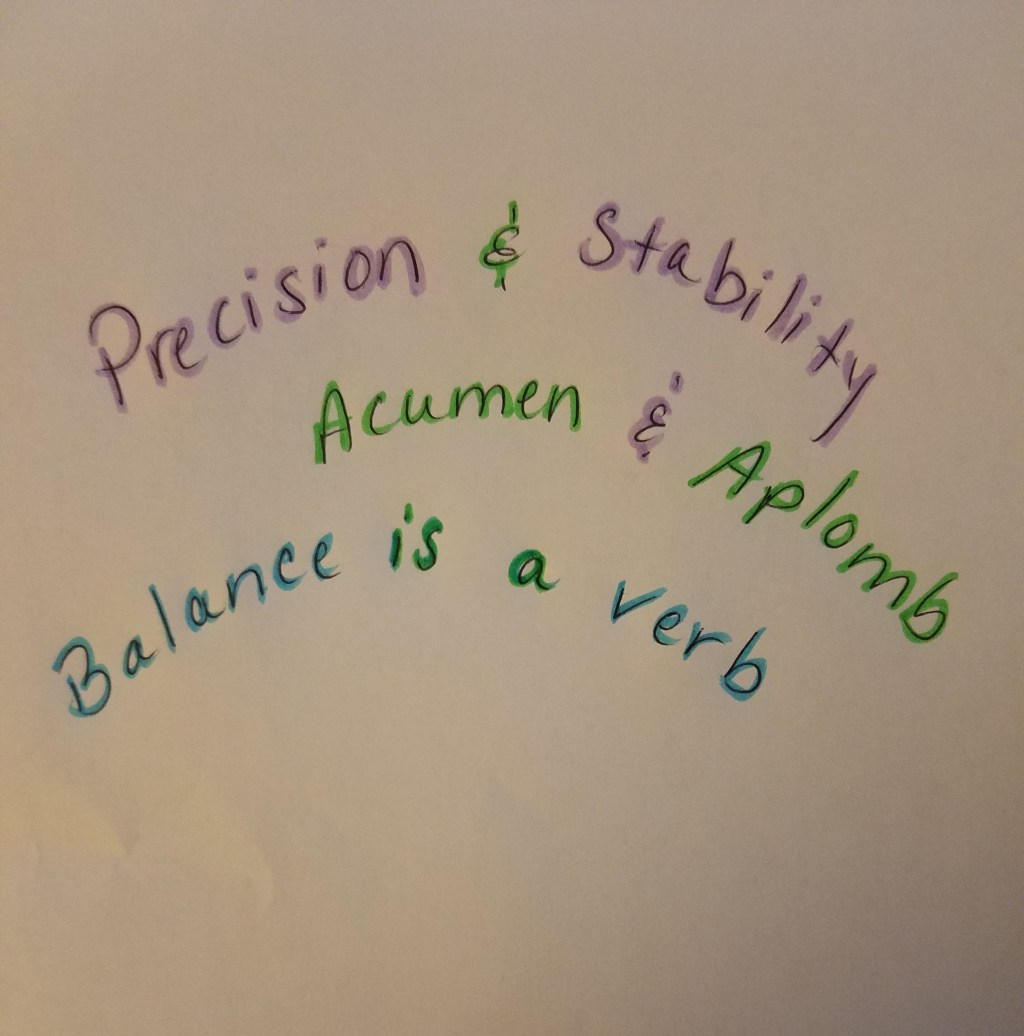 Precision & Stability
Acumen & Aplomb
Balance is a verb